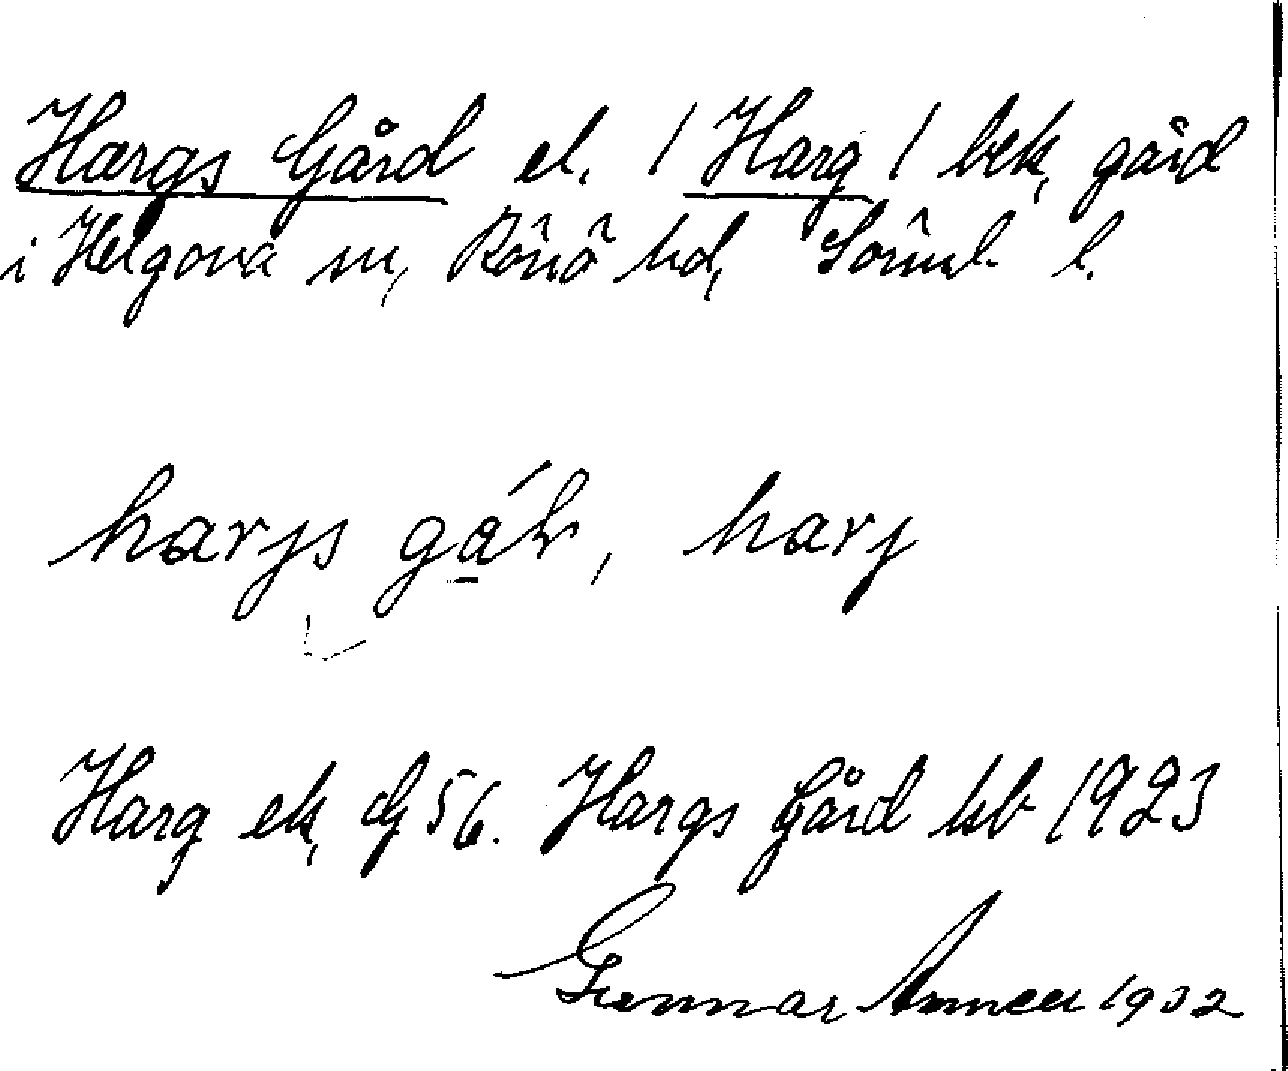 Hargs Gård el. / Harg / bek, gård
i Helgona sn, Rönö hd, Sörml. l.
harjs gǻɽ, harj
Harg ek, Gj 56. Hargs Gård kb 1923
Gunnar Annell 1932